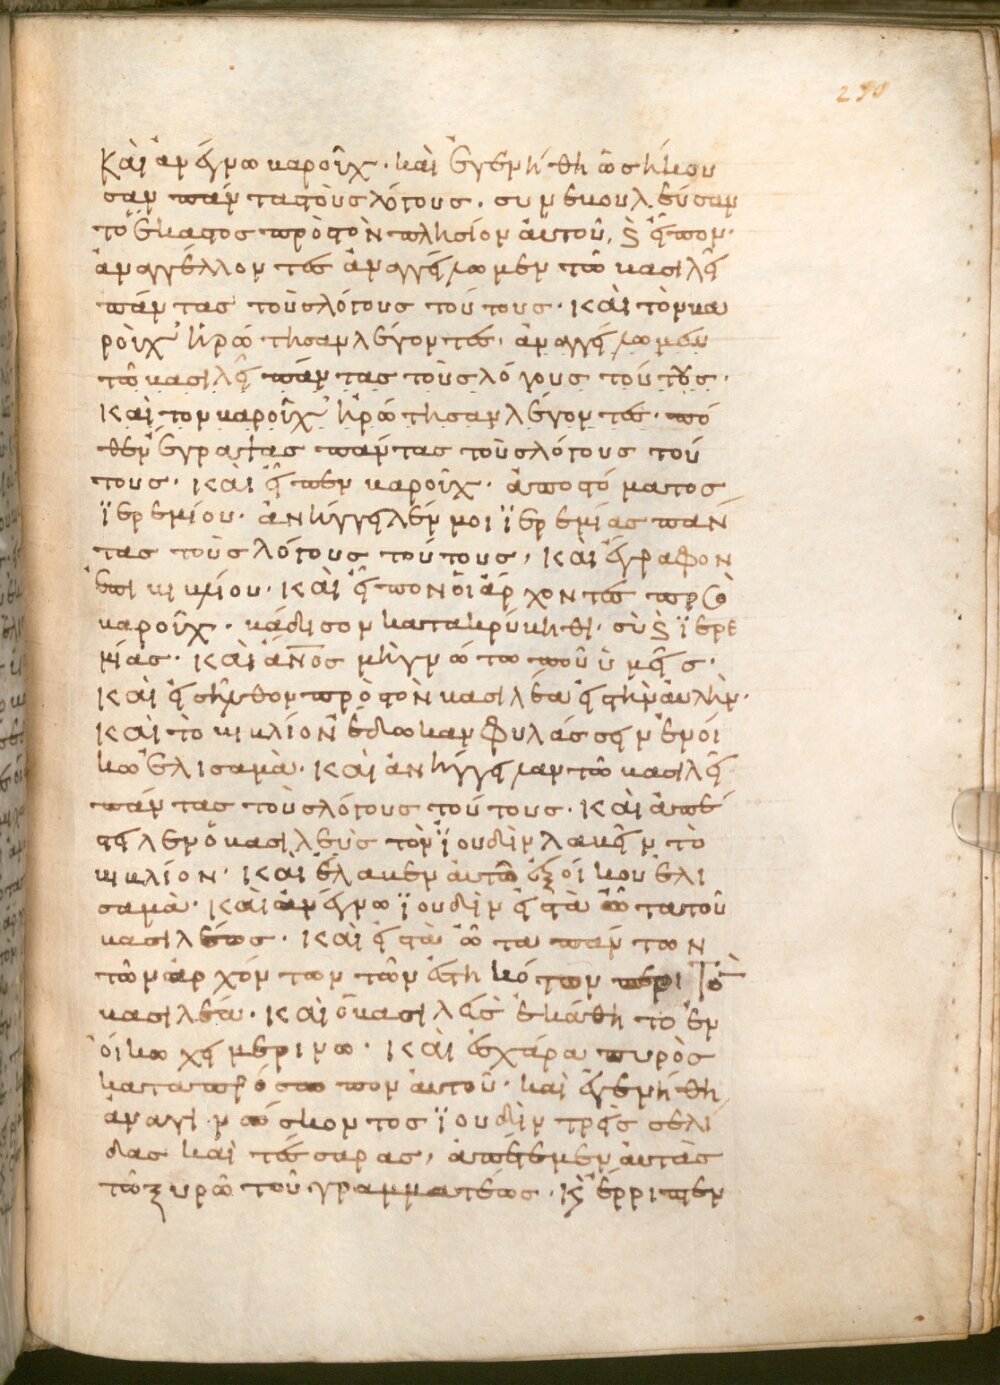 230
Καὶ ἀνέγνω βαροῦχ· καὶ ἐγενήθη ὡς ἤκου
σαν πάντας τοὺς λόγους· συνεβουλεύσαν
το ἕκαστος πρὸς τὸν πλησίον ἀυτοῦ, ϗ εἶπον·
ἀναγγέλλοντες ἀναγγείλωμεν τῶ βασιλεῖ
πάντας τοὺς λόγους τούτους· καὶ τὸν βα
ροὺχ ἠρώτησαν λέγοντες, ἀναγγείλωμεν
τῶ βασιλεῖ πάντας τοὺς λόγους τούτους·
καὶ τον βαροῦχ ἠρώτησαν λέγοντες· πό
θεν ἔγραψας πάντας τοὺς λόγους τού
τους· καὶ εἶπεν βαροῦχ· ἀπο στόματος
ϊερεμίου· ἀνήγγειλέν μοι ϊερεμίας πάν
τας τοὺς λόγους τούτους, καὶ ἔγραφον
ἐπι βιβλίου· καὶ εἶπον ὁι ἄρχοντες πρὸ
βαροῦχ· βάδισον κατακρύβηθι· σὺ ϗ ϊερε
μίας· καὶ ἄνος μὴ γνώτω ποῦ ὑμεῖς·
καὶ εἰσῆλθον πρὸς τὸν βασιλέα εἰς τὴν ἀυλὴν·
καὶ τὸ βιβλίον ἔδωκαν φυλάσσειν ἐν ὀί
κω ἐλισαμὰ· καὶ ἀνήγγειλαν τῶ βασιλεῖ
πάντας τοὺς λόγους τούτους· καὶ ἀπέ
στειλεν ὁ βασιλεὺς τὸν ϊουδὶν λαβεῖν τὸ
βιβλίον· καὶ ἔλαβεν ἀυτὸ ἐξ ὀίκου ἐλι
σαμὰ· καὶ ἀνέγνω ϊουδὶν εἰς τὰ ὦτα τοῦ
βασιλέως· καὶ εἰς τὰ ὦτα πάντων
τῶν ἀρχόντων τῶν ἑστηκότων περι τὸ
βασιλέα· καὶ ὁ βασιλεὺς ἐκάθητο ἐν
ὀίκω χειμερινω· καὶ ἐσχάρα πυρὸς
κατα πρόσωπον ἀυτοῦ· καὶ ἐγενήθη
ἀναγινώσκοντος ϊουδὶν τρεῖς σελί
δας καὶ τέσσαρας, ἀπέτεμεν ἀυτὰς
τῶ ξυρῶ τοῦ γραμματέως· ϗ ἔρριπτεν